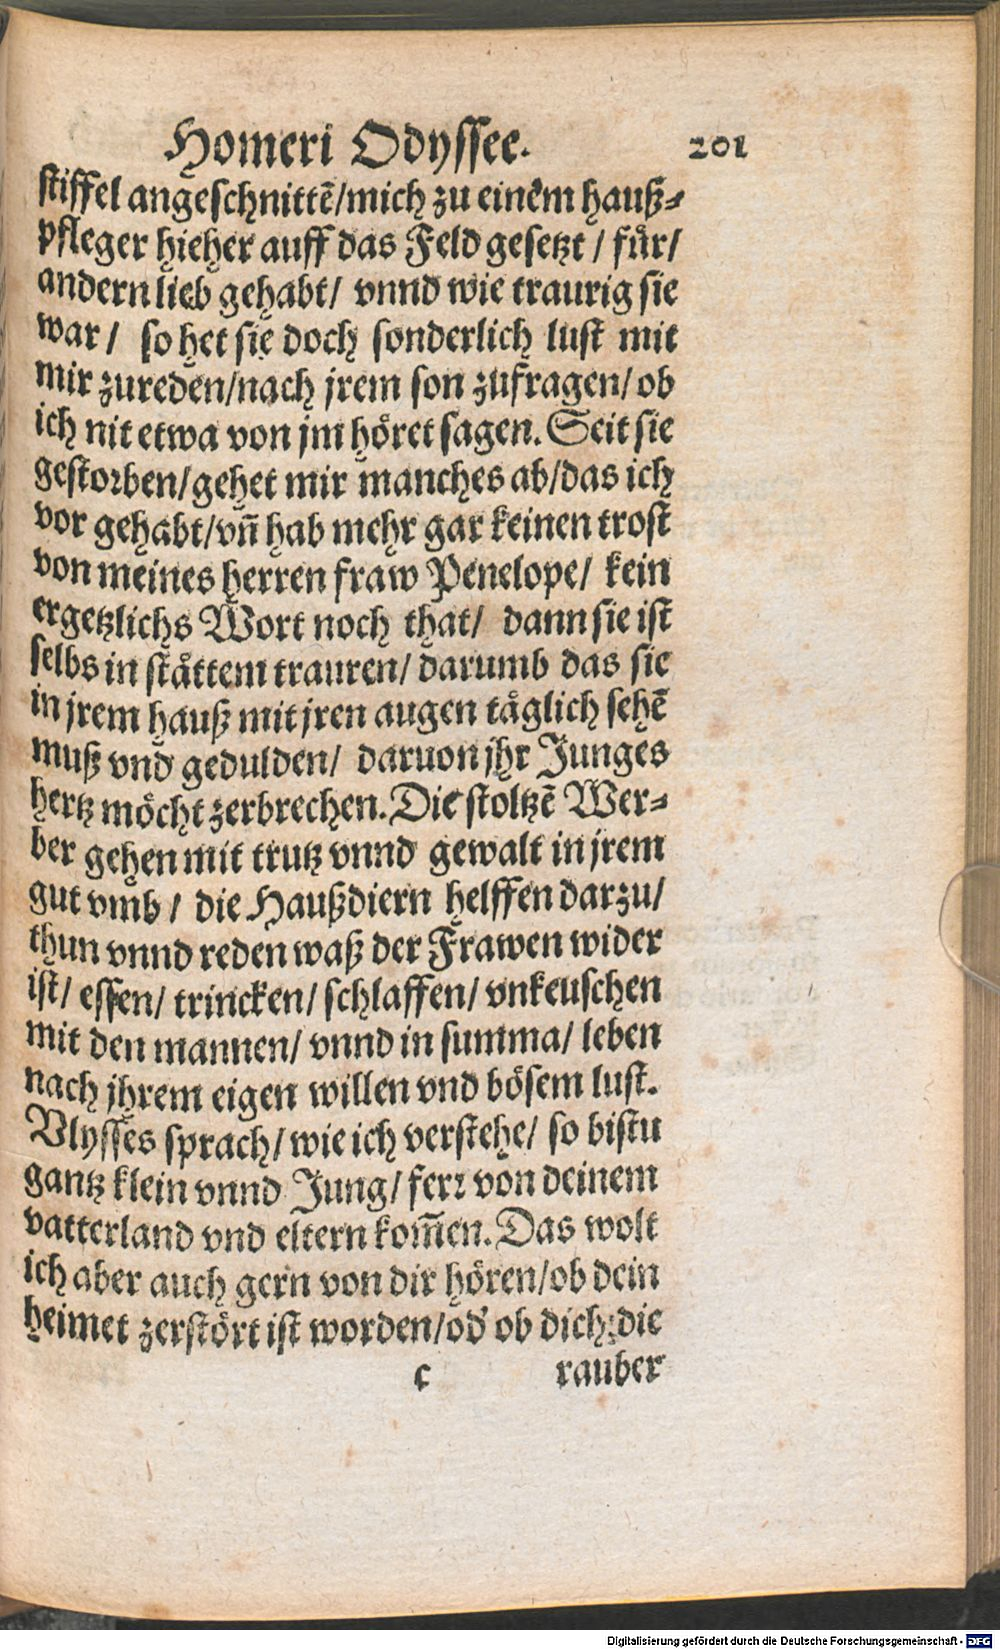 Homeri Odyssee. 201
stiffel angeschnittē/mich zu einem hauß⸗
pfleger hieher auff das Feld gesetzt / fuͤr/
andern lieb gehabt/ vnnd wie traurig sie
war/ so het sie doch sonderlich lust mit
mir zureden/nach jrem son zufragen/ ob
ich nit etwa von jm hoͤret sagen. Seit sie
gestorben/gehet mir manches ab/das ich
vor gehabt/vñ hab mehr gar keinen trost
von meines herren fraw Penelope/ kein
ergetzlichs Wort noch that/ dann sie ist
selbs in staͤttem trauren/ darumb das sie
in jrem hauß mit jren augen taͤglich sehē
muß vnd gedulden/ daruon jhr Junges
hertz moͤcht zerbrechen. Die stoltzē Wer⸗
ber gehen mit trutz vnnd gewalt in jrem
gut vmb / die Haußdiern helffen darzu/
thun vnnd reden waß der Frawen wider
ist/ essen/ trincken/ schlaffen/ vnkeuschen
mit den mannen/ vnnd in summa/ leben
nach jhrem eigen willen vnd boͤsem lust.
Vlysses sprach/ wie ich verstehe/ so bistu
gantz klein vnnd Jung/ ferꝛ von deinem
vatterland vnd eltern kom̃en. Das wolt
ich aber auch gern von dir hoͤren/ob dein
heimet zerstoͤrt ist worden/od' ob dich die
c rauber
Digitalisierung gefördert durch die Deutsche Forschungsgemeinschaft - DFG